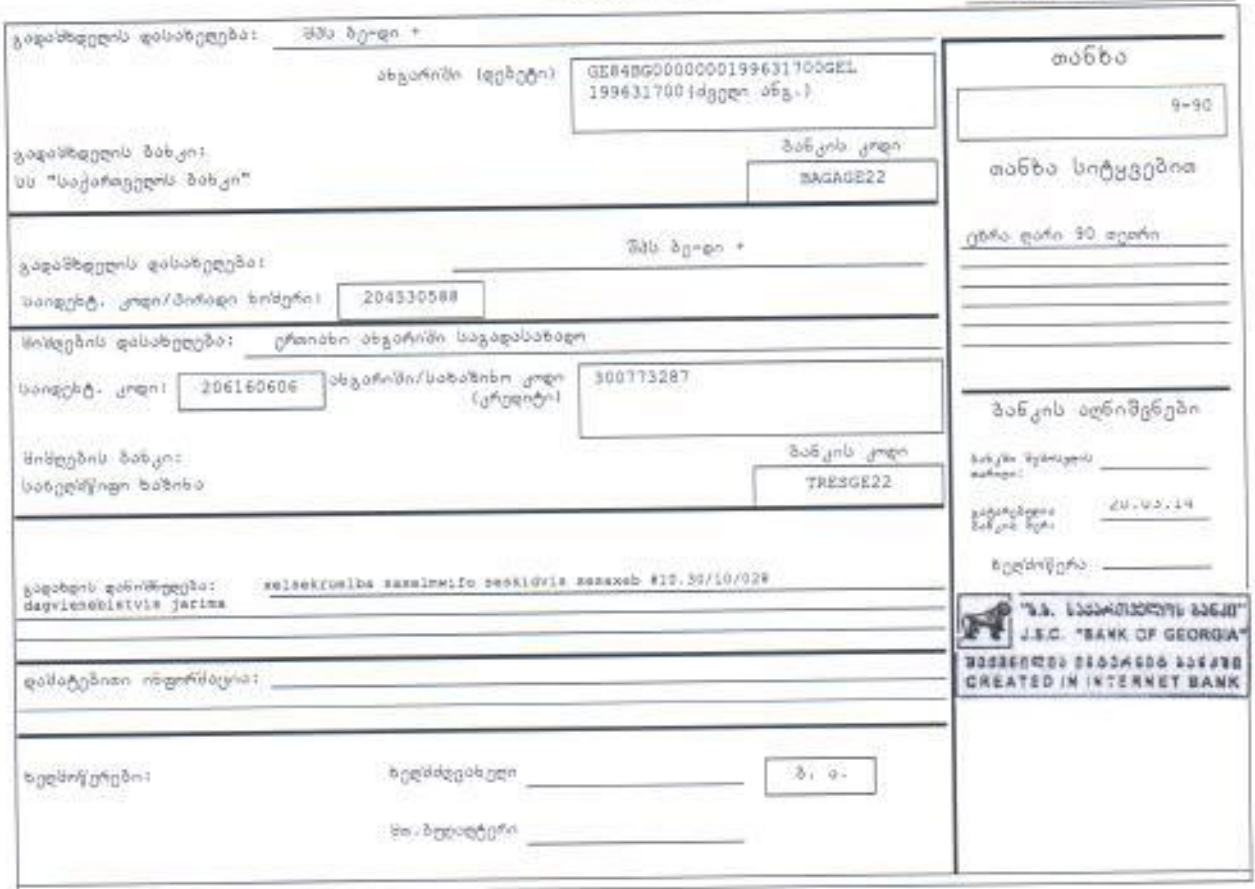 გადამხდელის დასახელება: შპს ბე-დი +
ანგარიში (დებეტი) GE84BG0000000199631700GEL
199631700(ძველი ანგ.)
გადამხდელის ბანკი: ბანკის კოდი
სს "საქართველოს ბანკი" BAGAGE22
გადამხდელის დასახელება: შპს ბე-დი +
საიდენტ. კოდი/პირადი ნომერი: 204530588
მიმღების დასახელება: ერთიანი ანგარიში საგადასახადო
საიდენტ. კოდი: 206160606 ანგარიში/სახაზინო კოდი 300773287
(კრედიტი)
მიმღების ბანკი: ბანკის კოდი
სახელმწიფო ხაზინა TRESGE22
გადახდის დანიშნულება: xelsekruelba saxelmwifo seskidvis sesaxeb #10.30/10/028
dagvianebistvis jarima
დამატებითი ინფორმაცია:
ხელმოწერები: ხელმძღვანელი ბ. ა.
მთ.ბუღალტერი
თანხა
9-90
თანხა სიტყვებით
ცხრა ლარი 90 თეთრი
ბანკის აღნიშვნები
ბანკში შემოსვლის
თარიღი:
გატარებულია 20.03.14
ბანკის მერ:
ხელმოწერა
"ს.ს. საქართველოს ბანკი"
J.S.C. "BANK OF GEORGIA"
შექმნილია ინტერნეტ ბანკში
CREATED IN INTERNET BANK